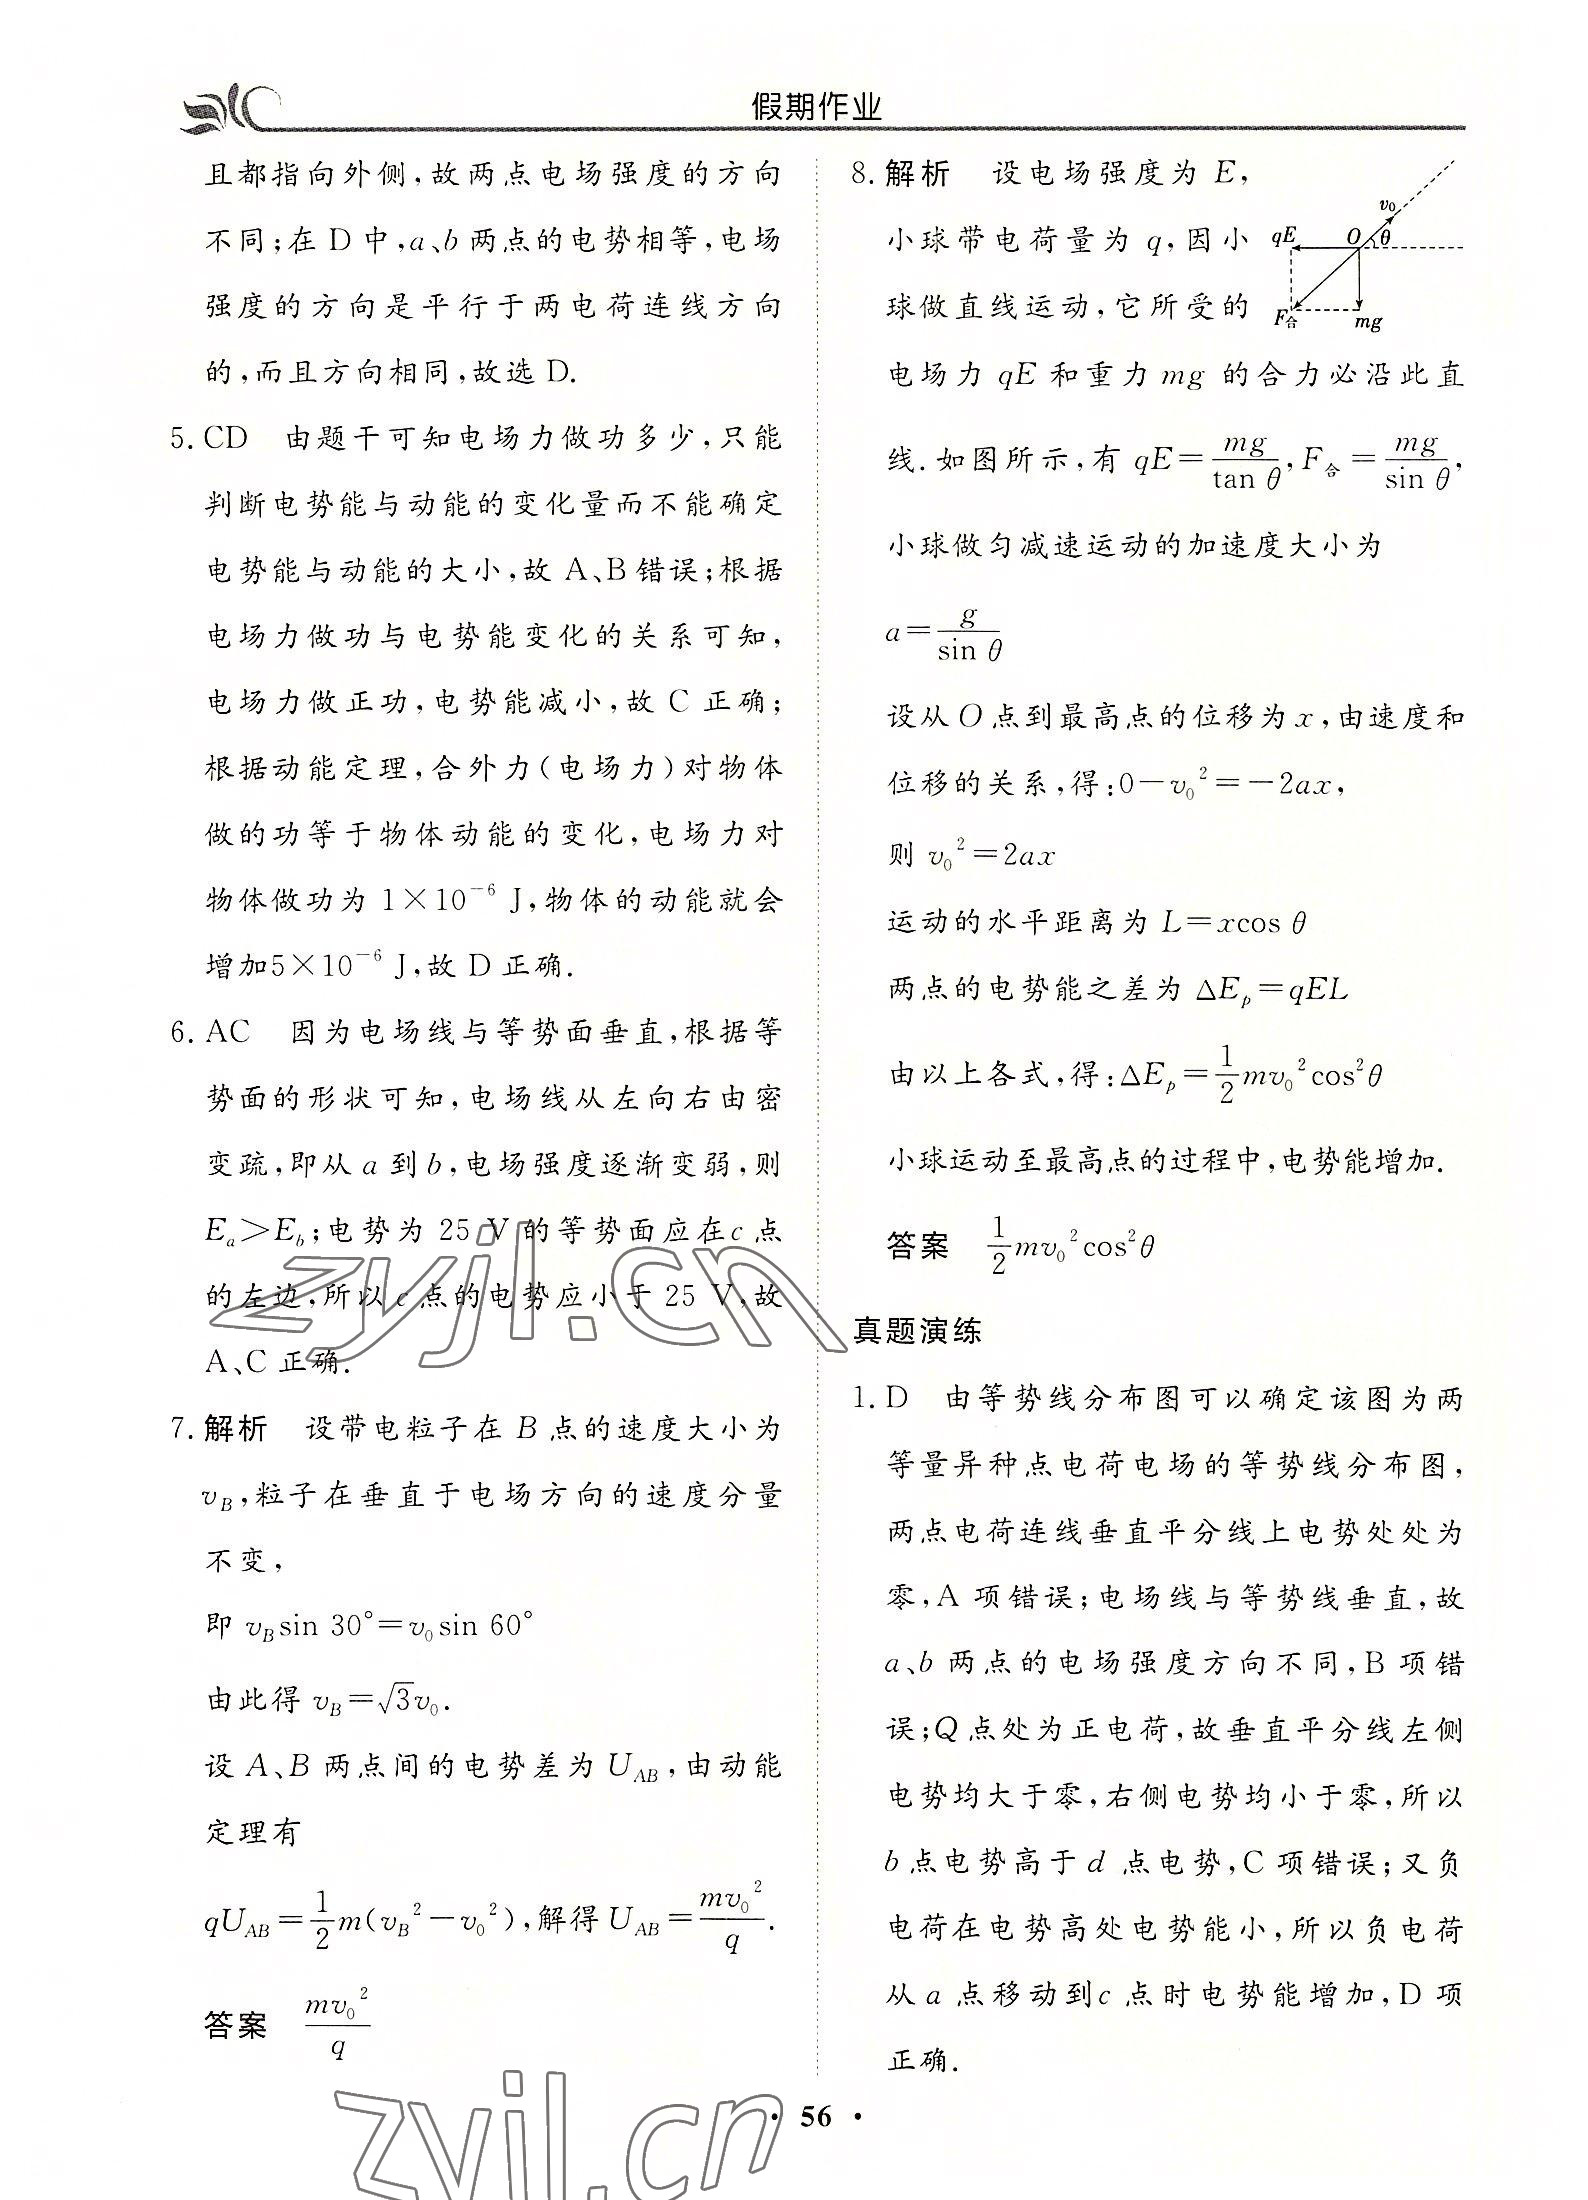 假期作业
且都指向外侧,故两点电场强度的方向
不同;在 D 中,a、b 两点的电势相等,电场
强度的方向是平行于两电荷连线方向
的,而且方向相同,故选 D.
5. CD 由题干可知电场力做功多少,只能
判断电势能与动能的变化量而不能确定
电势能与动能的大小,故 A、B 错误;根据
电场力做功与电势能变化的关系可知,
电场力做正功,电势能减小,故 C 正确;
根据动能定理,合外力(电场力)对物体
做的功等于物体动能的变化,电场力对
物体做功为 1×10⁻⁶ J,物体的动能就会
增加5×10⁻⁶ J,故 D 正确.
6. AC 因为电场线与等势面垂直,根据等
势面的形状可知,电场线从左向右由密
变疏,即从 a 到 b,电场强度逐渐变弱,则
Eₐ>E_b;电势为 25 V 的等势面应在 c 点
的左边,所以 c 点的电势应小于 25 V,故
A、C 正确.
7. 解析 设带电粒子在 B 点的速度大小为
v_B,粒子在垂直于电场方向的速度分量
不变,
即 v_B sin 30°=v₀ sin 60°
由此得 v_B=√3v₀.
设 A、B 两点间的电势差为 U_AB,由动能
定理有
qU_AB=1/2 m(v_B²-v₀²),解得 U_AB=mv₀²/q.
答案 mv₀²/q
8. 解析 设电场强度为 E,
小球带电荷量为 q,因小
球做直线运动,它所受的
v₀
qE O θ
F合 mg
电场力 qE 和重力 mg 的合力必沿此直
线.如图所示,有 qE=mg/tan θ,F合=mg/sin θ,
小球做匀减速运动的加速度大小为
a=g/sin θ
设从 O 点到最高点的位移为 x,由速度和
位移的关系,得:0-v₀²=-2ax,
则 v₀²=2ax
运动的水平距离为 L=xcos θ
两点的电势能之差为 ΔE_p=qEL
由以上各式,得:ΔE_p=1/2 mv₀²cos²θ
小球运动至最高点的过程中,电势能增加.
答案 1/2 mv₀²cos²θ
真题演练
1. D 由等势线分布图可以确定该图为两
等量异种点电荷电场的等势线分布图,
两点电荷连线垂直平分线上电势处处为
零,A 项错误;电场线与等势线垂直,故
a、b 两点的电场强度方向不同,B 项错
误;Q 点处为正电荷,故垂直平分线左侧
电势均大于零,右侧电势均小于零,所以
b 点电势高于 d 点电势,C 项错误;又负
电荷在电势高处电势能小,所以负电荷
从 a 点移动到 c 点时电势能增加,D 项
正确.
zyjl.cn
zyjl.cn
· 56 ·